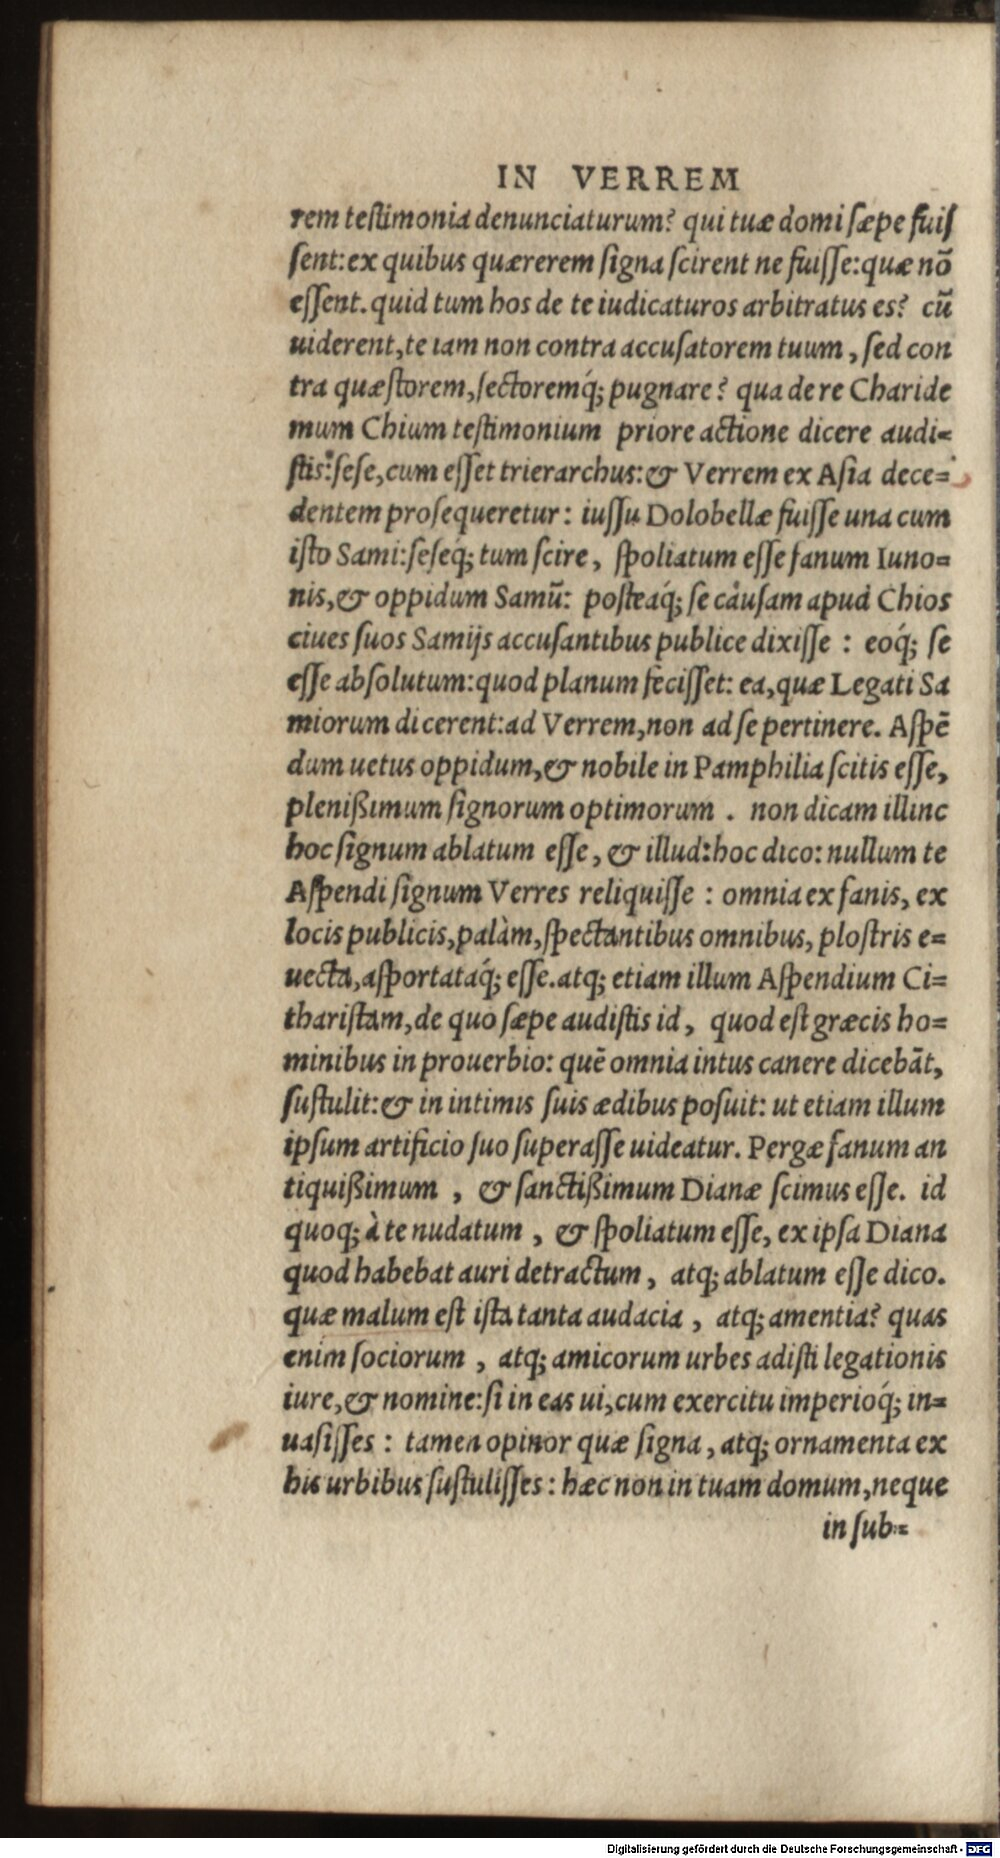 IN VERREM
rem testimonia denunciaturum? qui tuæ domi sæpe fuis
sent: ex quibus quærerem signa scirent ne fuisse: quæ nō
essent. quid tum hos de te iudicaturos arbitratus es? cū
uiderent, te iam non contra accusatorem tuum, sed con
tra quæstorem, sectoremq́; pugnare? qua de re Charide
mum Chium testimonium priore actione dicere audi=
stis: sese, cum esset trierarchus: & Verrem ex Asia dece=
dentem prosequeretur: iussu Dolobellæ fuisse una cum
isto Sami: seseq́; tum scire, spoliatum esse fanum Iuno=
nis, & oppidum Samū: posteaq́; se causam apud Chios
ciues suos Samijs accusantibus publice dixisse: eoq́; se
esse absolutum: quod planum fecisset: ea, quæ Legati Sa
miorum dicerent: ad Verrem, non ad se pertinere. Aspē
dum uetus oppidum, & nobile in Pamphilia scitis esse,
plenißimum signorum optimorum. non dicam illinc
hoc signum ablatum esse, & illud: hoc dico: nullum te
Aspendi signum Verres reliquisse: omnia ex fanis, ex
locis publicis, palàm, spectantibus omnibus, plostris e=
uecta, asportataq́; esse. atq; etiam illum Aspendium Ci=
tharistam, de quo sæpe audistis id, quod est græcis ho=
minibus in prouerbio: quē omnia intus canere dicebāt,
sustulit: & in intimis suis ædibus posuit: ut etiam illum
ipsum artificio suo superasse uideatur. Pergæ fanum an
tiquißimum, & sanctißimum Dianæ scimus esse. id
quoq; à te nudatum, & spoliatum esse, ex ipsa Diana
quod habebat auri detractum, atq; ablatum esse dico.
quæ malum est ista tanta audacia, atq; amentia? quas
enim sociorum, atq; amicorum urbes adisti legationis
iure, & nomine: si in eas ui, cum exercitu imperioq́; in=
uasisses: tamen opinor quæ signa, atq; ornamenta ex
his urbibus sustulisses: hæc non in tuam domum, neque
in sub=
Digitalisierung gefördert durch die Deutsche Forschungsgemeinschaft - DFG